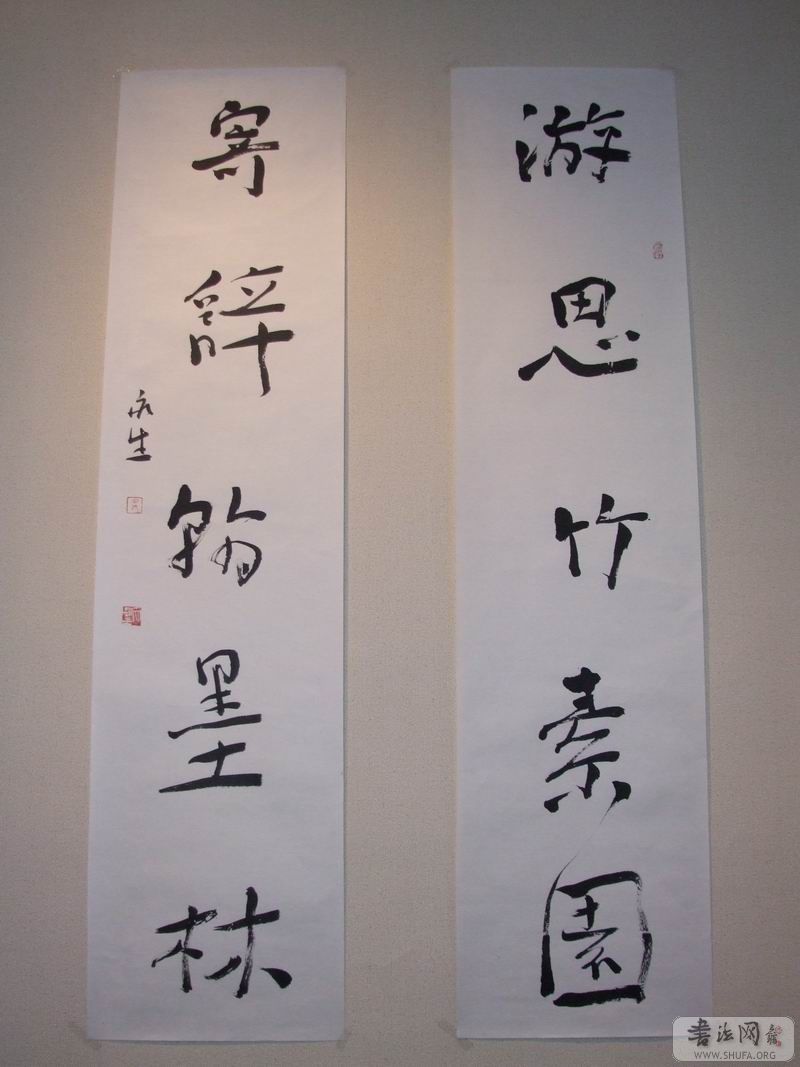 游思竹素園
寄辭翰墨林
永生
书法网
WWW.SHUFA.ORG